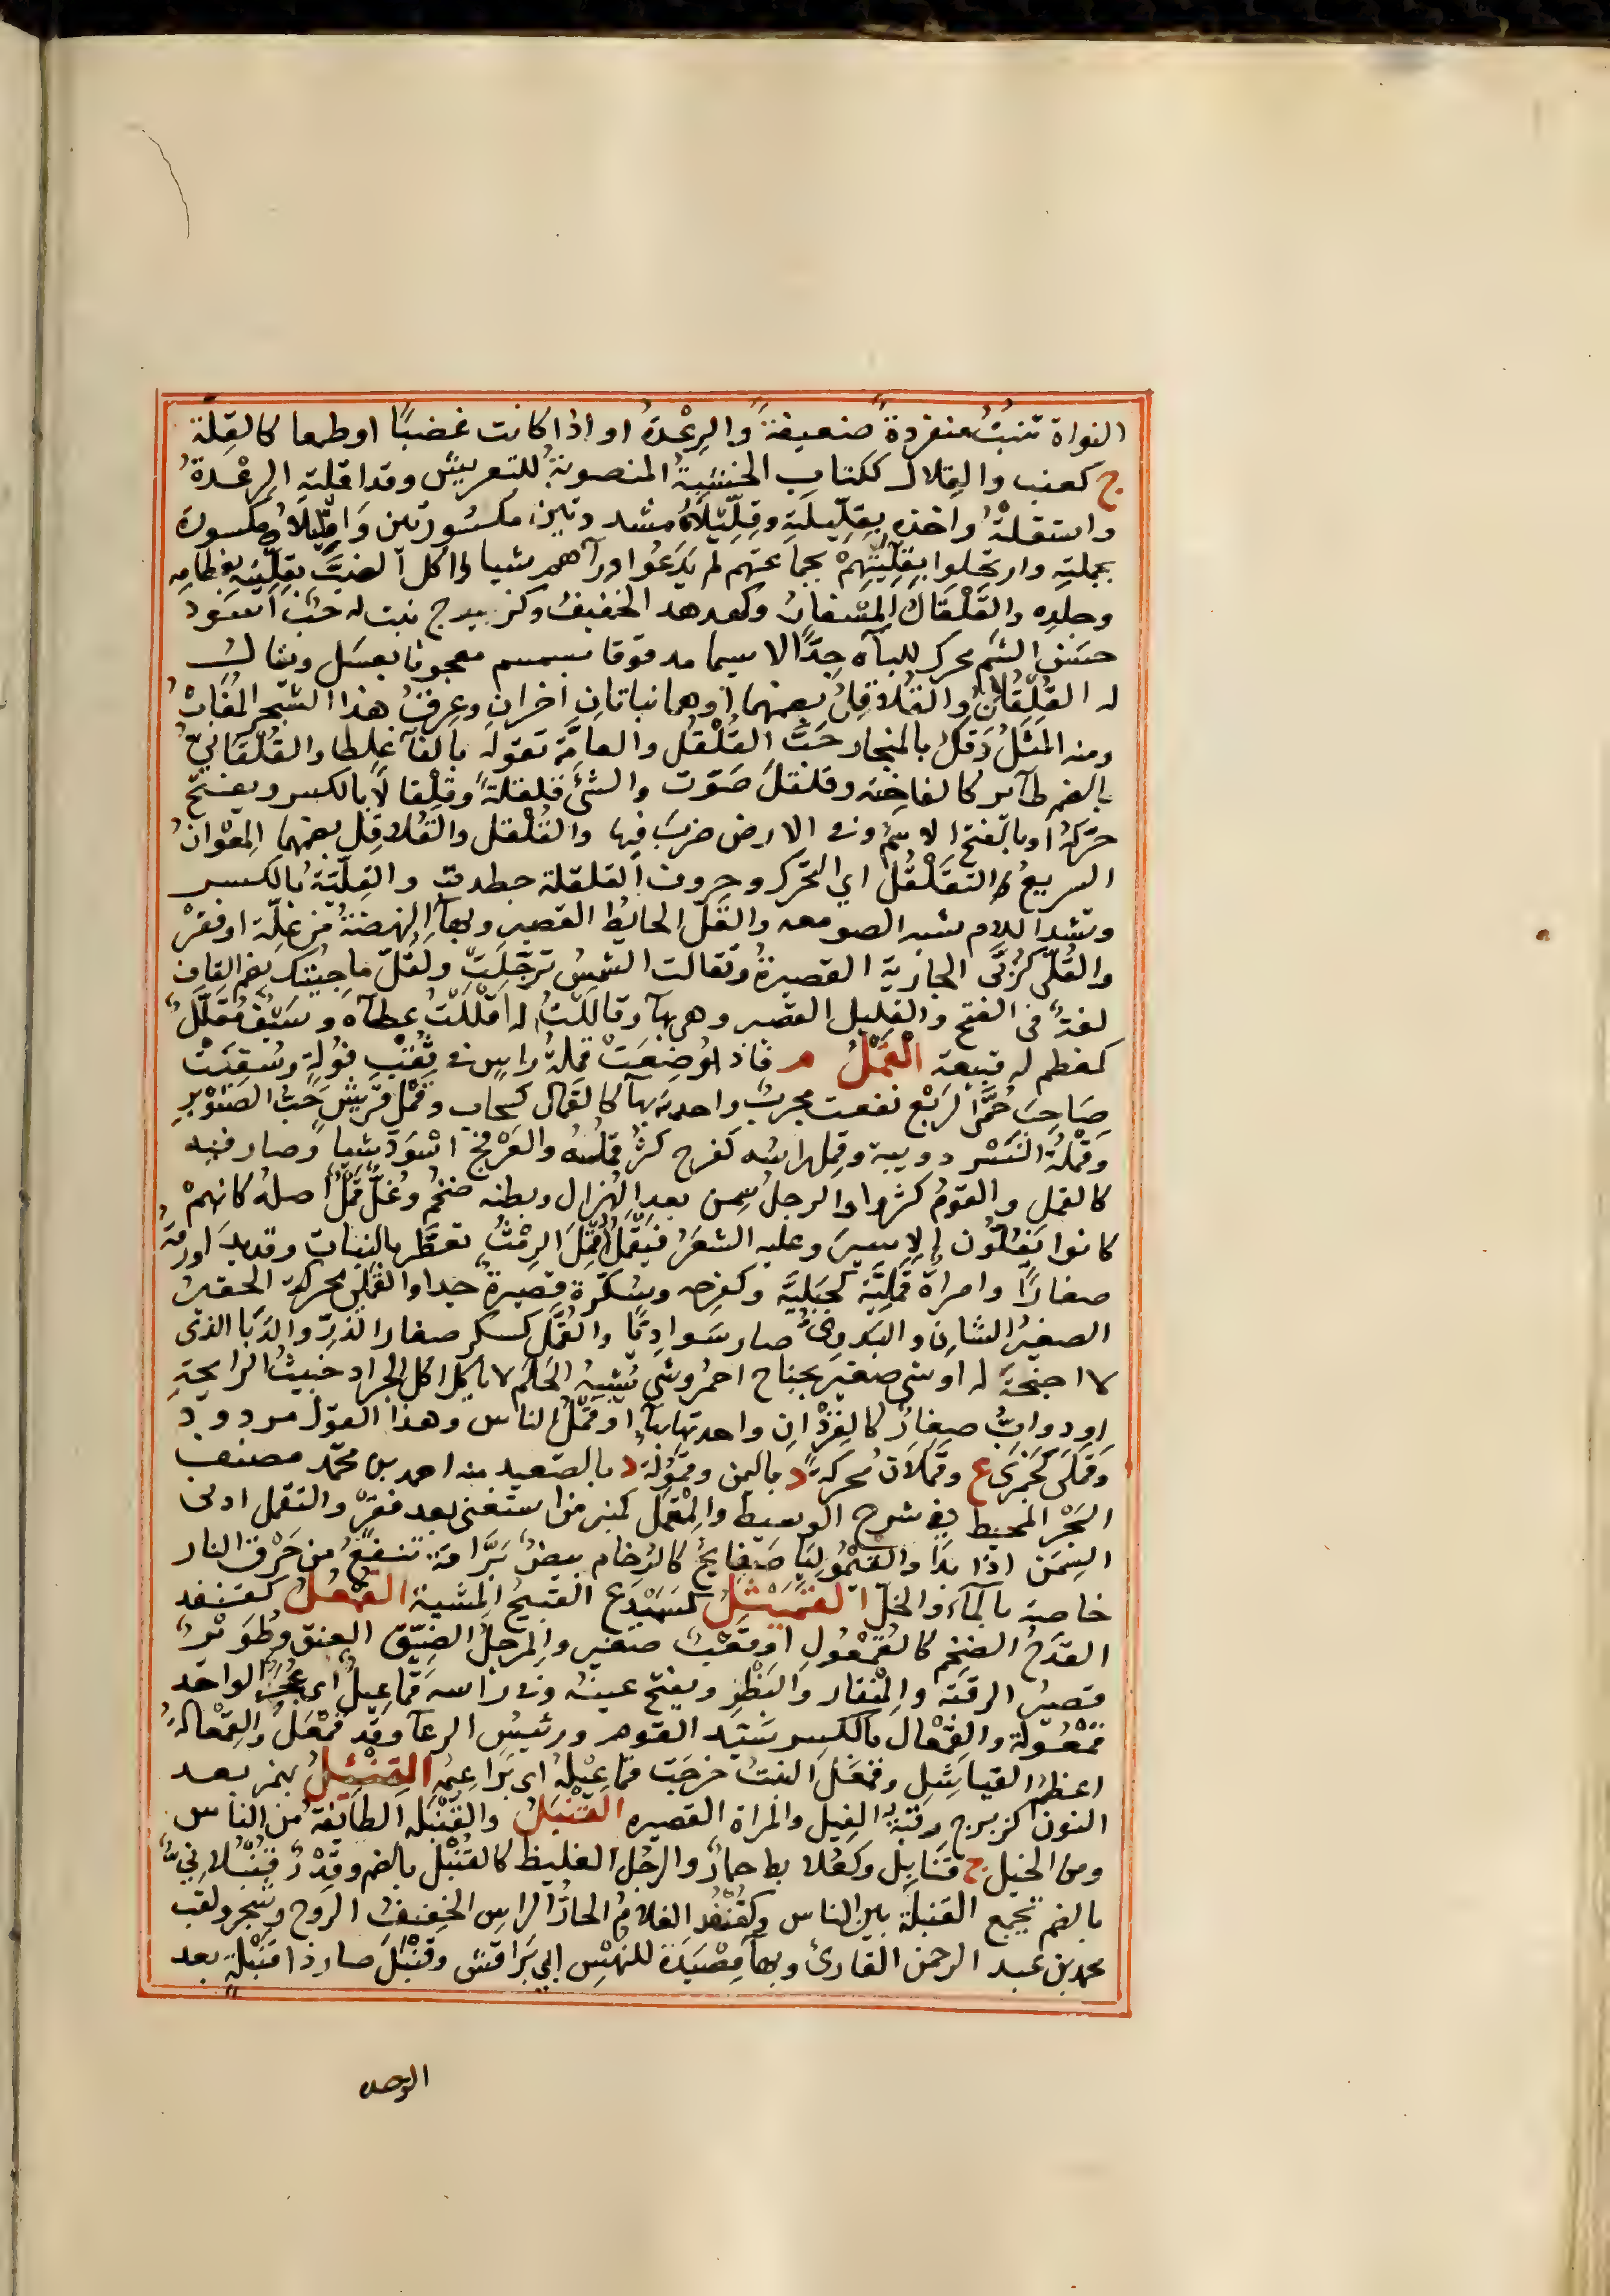 النواة تنبتُ منفردةً ضعيفةً والرِعْدةُ او اذا كانت غضبًا او طمعا كالقِلّة
ج كعنب والقِلال ككتاب الخشبةُ المنصوبةُ للتعريش وقد اقلته الرعْدةُ
واستقلتْهُ واخذه بقِلّيلَتِه وقِلّيلاهُ مشددتين مكسُورتين وَاقِلّيلاهُ مكسورة
بجملته وارتحلوا بقِلّيّتهِمْ بجماعتهم لم يَدَعُوا ورآهم شيا واكل الضبَّ بقلّيّته بعظامه
وجلده والقَلْقَالُ المِسْفارُ وكهدهد الخفيفُ وكزبرج نبت له حَبّ اسْوَد
حسَنُ الشم محرك للباه جِدًّا لا سيما مدقوقا بسمسم معجونا بعسَل ويقالُ
له القُلقُلانُ والقُلاقِلُ بضمهما او هما نباتانِ اخرانِ وعِرقُ هذا الشجر المُغَاثُ
ومنه المثلُ دَقَّكَ بالمنحاز حَبَّ القُلْقُل والعامَّة تقوله بالفآ غلطا والقُلْقُلانيّ
بالضم طآئر كالفاخِتَه وقلقلَ صَوّت والشئَ قلقلةً وقِلْقالاً بالكسر ويفتح
حرّكهُ او بالفتح الاسمُ وفي الارض ضربَ فيها والقُلْقل والقُلاقِل بضمهما المِعْوانُ
السريعُ التقَلْقُل اي التحَرّك وحروف القلقلة جطدقب والقِلّيّةُ بالكسر
وتشد اللام شبه الصومعه والقَلّ الحايط القصير وبهآ النهضةُ من عِلّة او فقرْ
والقُلّى كرُبّى الجارية القصيرةُ وتقالت الشمس ترحّلت ولَقُلّ ما جِيتك بضم القاف
لغةٌ فى الفتح والقليل القصير وهى بهآ وقاللتُ له اقْلَلتُ عطآه وسَيْف مُقلَّلٌ
كمعظم له قبيعة القَمْلُ م فاذا وُضِعَتْ قملةُ راسٍ في ثُقْبِ فولةٍ وسُقِيَتْ
صَاحِبَ حُمَّى الرِبْع نفعت مجربٌ واحدته بهآ كالقَمال كسحاب وقمل قريش حَبُّ الصنَوْبرِ
وقَمْلةُ النَسْر دويبة وقمِل راسُه كفرح كثُر قملُهُ والعَرْفج اسْوَدّ شيا وصار فيه
كالقمل والقومُ كثروا والرجلُ سمن بعد الهُزال وبطنه ضخُمَ وغُلٌّ قَمِلٌ اصلهُ كانهمْ
كانوا يَغلّون الاسيرَ وعليه الشعَرُ فيَقمَلُ اقمَلَ الرِمْثُ تفطَّر بالنبات وقد بدَا ورَقهُ
صغارًا وامراة قَمَليَّة كجَبَليَّه وكفَرِحه وسُكّرة قصيرةٌ جدا والقَمَلي محركة الحقيرُ
الصغيرُ الشان والبَدَويُّ صار سَواديًّا والقُمّل كسكر صغار الذرّ والدَبَا الذى
لا اجنحَة له او شى صغيرٌ بجناح احمرَ وشى يُشبِهُ الحلمَ لا ياكل اكل الجراد خبيثُ الرايحةِ
او دوابّ صغارٌ كالقِرْدَانِ واحدتها بهآ او قمْلُ الناس وهذا القول مردودٌ
وقَمَلى كجَمَزى ع وقَمَلانُ محركةً د باليمن وقَمُولة د بالصعيد منه احمد بن محمّد مصنف
البَحْر المحيط في شرح الوسيط والمِقْمَل كمنبر من استغنى بعد فقرٍ والتقمل ادنى
السِمَن اذا بدَا والقَيْمُولِيَا صَفايحُ كالرُخام بيضٌ بَرّاقة تنفعُ من حَرْق النار
خاصة بالمآء والخلّ القَمَيْثَلُ كسَمَيْدَع القبيحُ المشيه القُمْعُلُ كقنفد
القدَحُ الضخم كالقُمعُولِ او قعْبٌ صغير والمرجلُ الضيّق العنق وطويرٌ
قصيرُ الرقبَه والمنْقار والبَظْر ويفتح عينهُ وفي راسه قَماعيلُ اى عُجَرٌ الواحد
قُمْعُولة والقِمْعال بالكسر سَيّد القوم ورئيسُ الرعآ وقد قَمْعَلَ والقِمْعالةُ
اعظمُ الفياشِلِ وقمعَل النبتُ خرجَت قماعيلُهُ اى بَراعِيمُه القِنْئِلُ بهمز بعد
النون كزبرج رقبةُ الفِيل والمراة القصيره القَنْبَلُ والقَنْبَلَة الطائفةُ من الناس
ومن الخيل ج قنَابِل وكعُلابط حمارٌ والرجُل الغليظ كالقُنْبُل بالضم وقِدْرٌ قُنْبُلانيّةٌ
بالضم تجمع القنبلة بين الناس وكقُنْفد الغلامُ الحادّ الراس الخفيفُ الروح وشجرٌ ولقب
محمد بن عبد الرحمن القارئ وبهآ مِصْيَدَة للنهَسِ ابي بَراقش وقَنْبَلَ صار ذا قَنبلةٍ بعد
الوحده